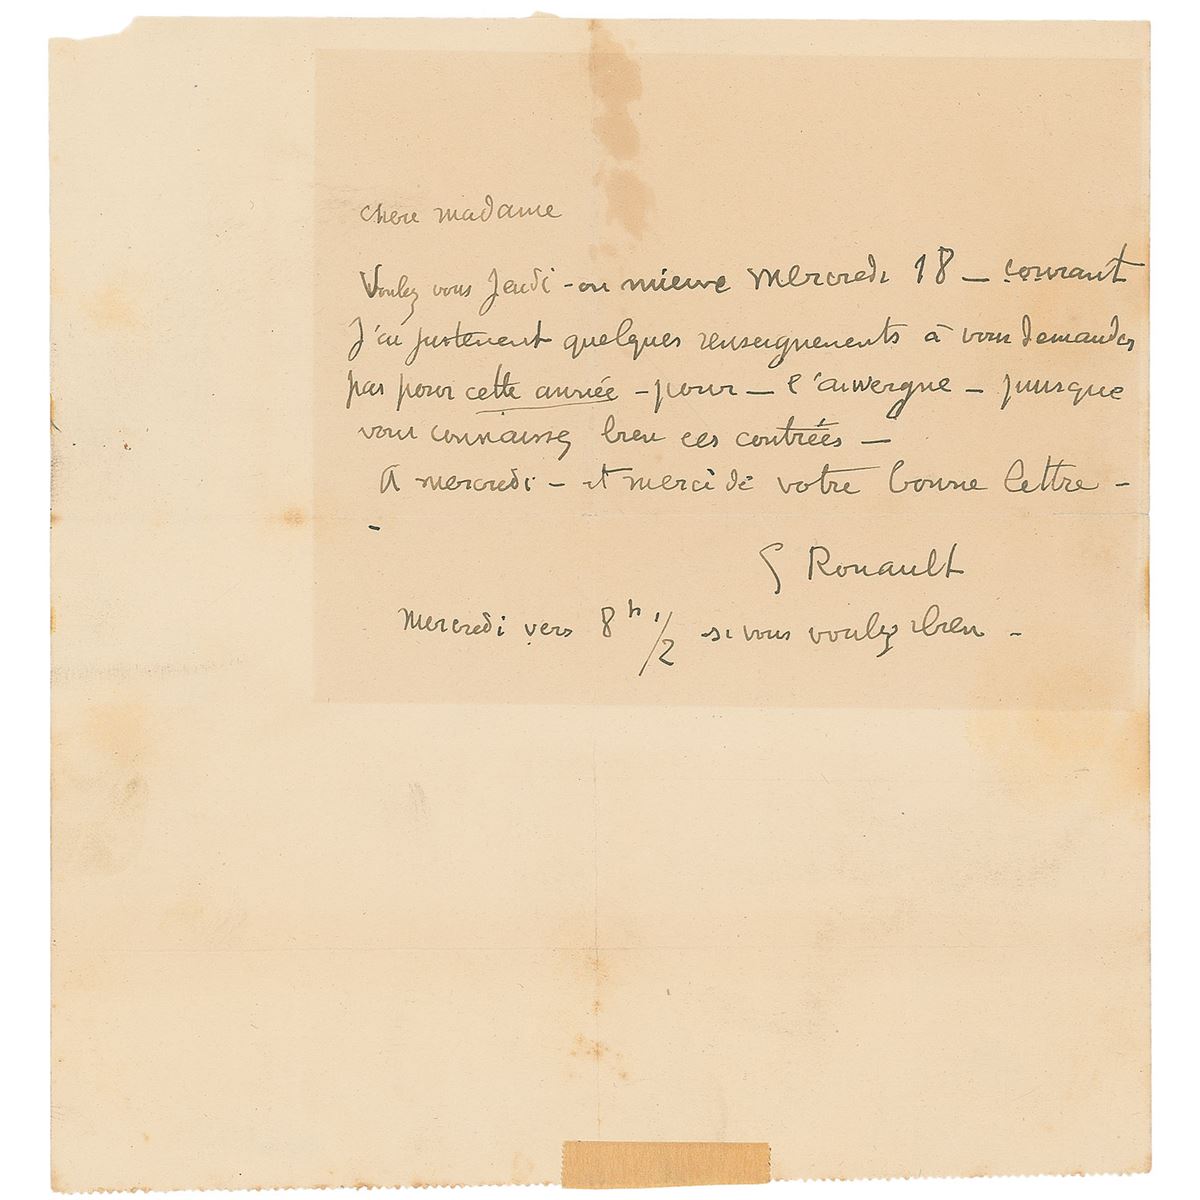 chere madame
Voulez vous Jeudi - ou mieux Mercredi 18 - courant
J'ai justement quelques renseignements à vous demander
pas pour cette année - pour - l'auvergne - puisque
vous connaissez bien ces contrées -
A mercredi - et merci de votre bonne lettre -
-
G Rouault
Mercredi vers 8h 1/2 si vous voulez bien -